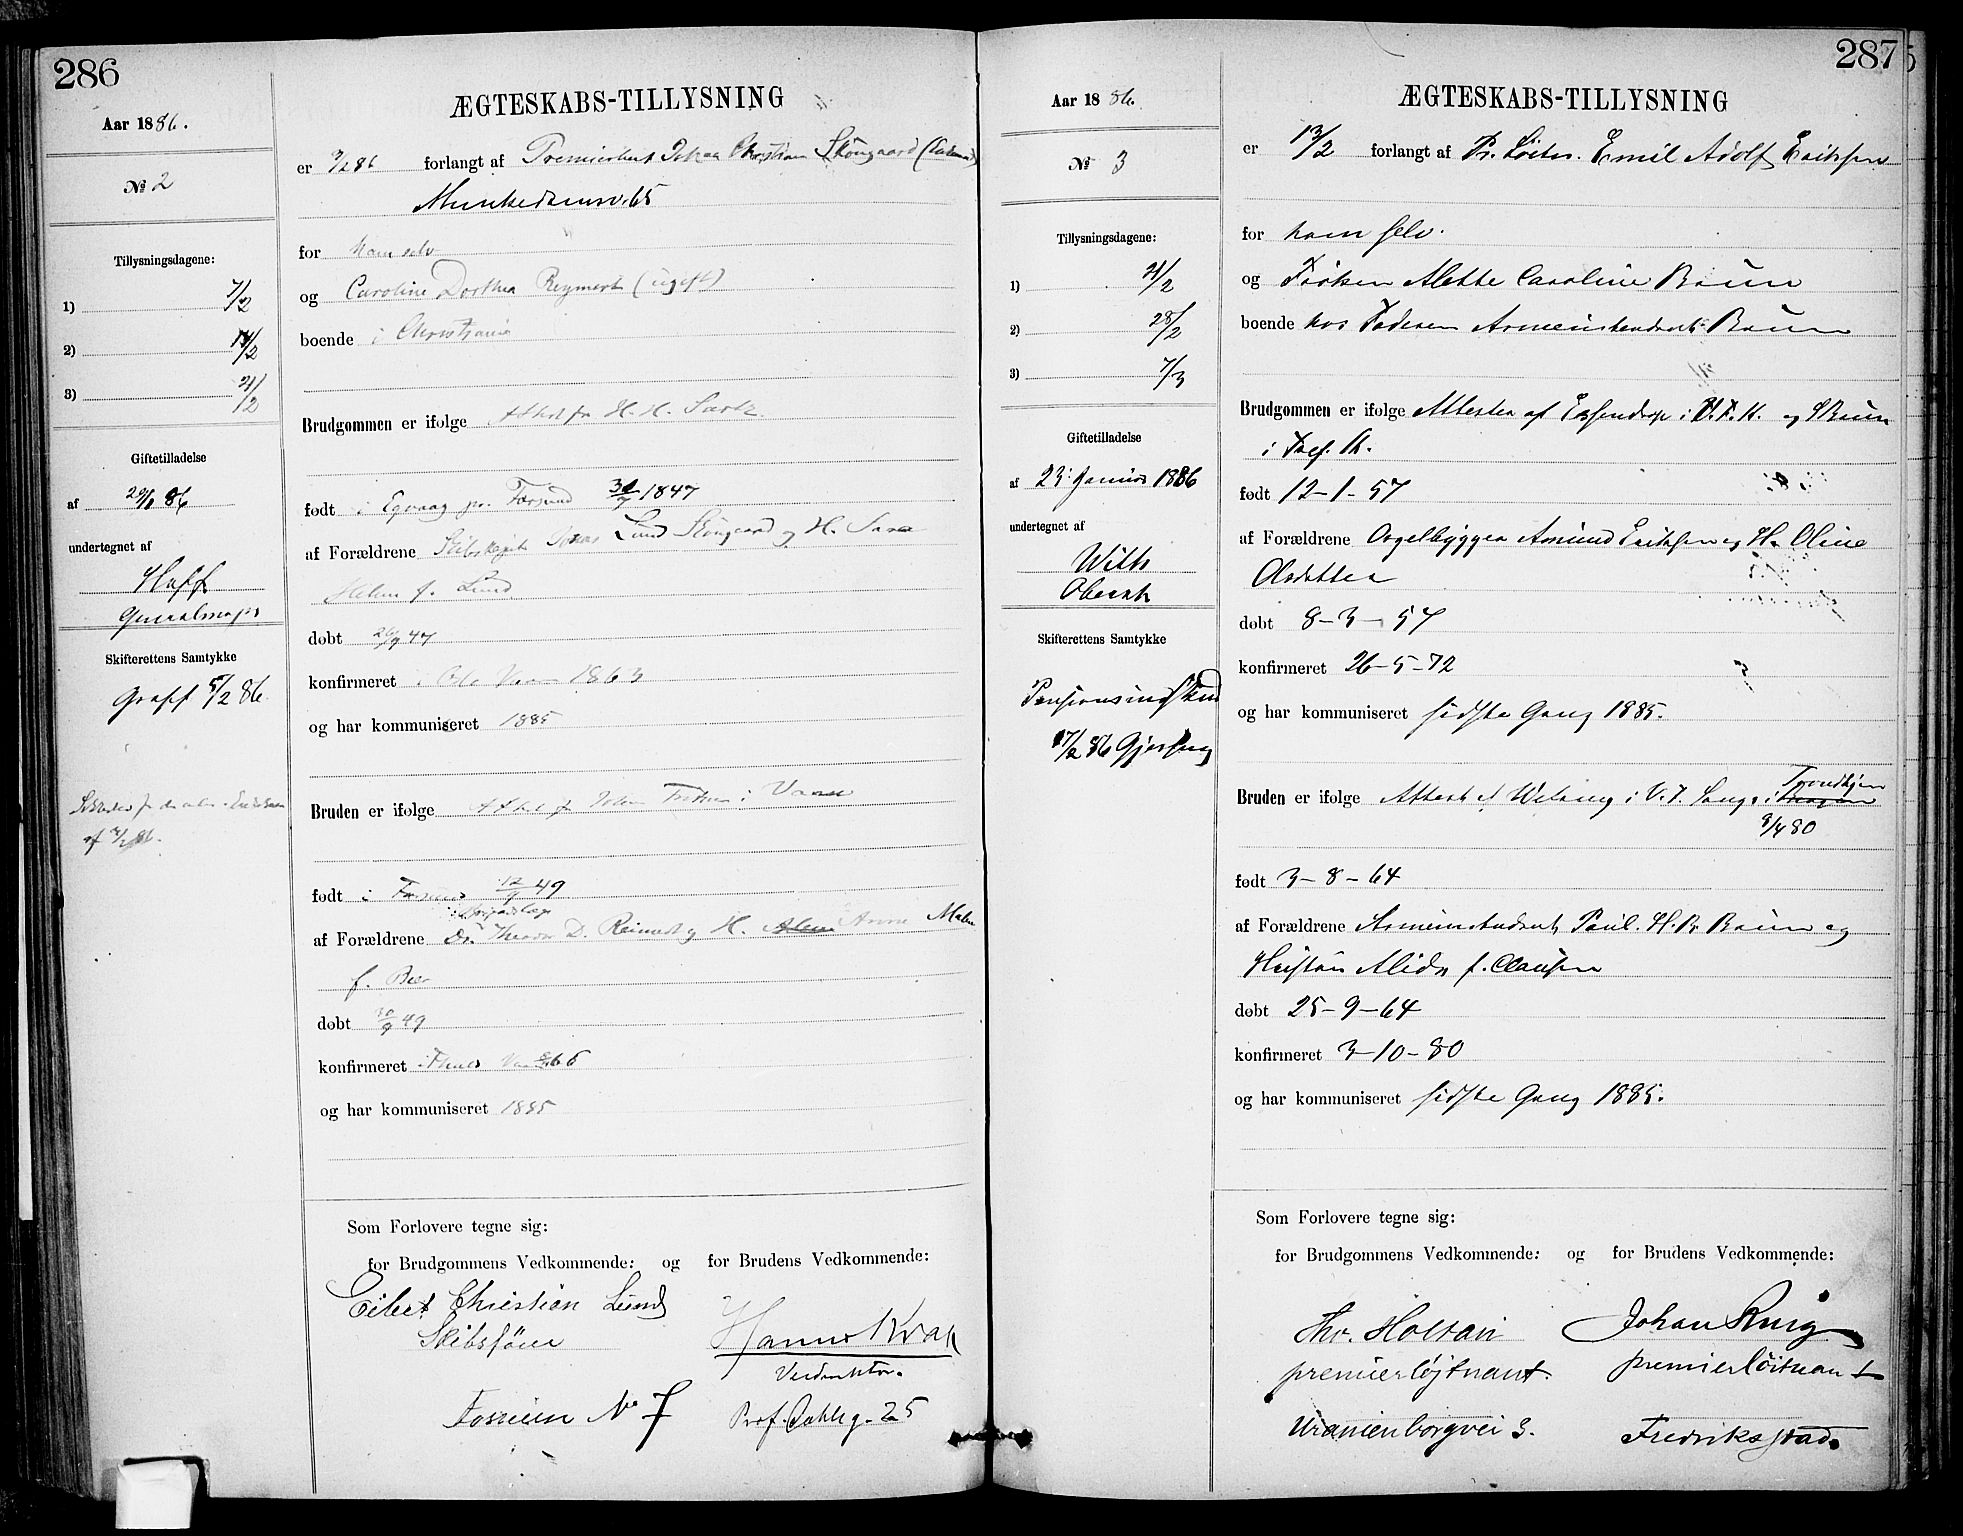 286
Aar 1886.
№ 2
Tillysningsdagene:
1) 7/2
2) 14/2
3) 21/2
Giftetilladelse
af 29/1 86
undertegnet af
Haff
Generalmajor
Skifterettens Samtykke
Graff 5/2 86.
ÆGTESKABS-TILLYSNING
er forlangt af Premierløit Christian Skougaard
Munkedamsv. 65
for ham selv
og Caroline Dorthea Reymert (ugift)
boende i Christiania
Brudgommen er ifølge Attest fra H. H.
født i pr. Farsund 1847
af Forældrene Lund Skougaard og H.
f. Lund
døbt 26/9 47
konfirmeret i 1863
og har kommuniseret 1885
Bruden er ifølge Attest fr i Vanse
født i 12/9 49
af Forældrene Dr. Theodor D. Reimert og H. Anne Malene
f. Beer
døbt 30/9 49
konfirmeret i 66
og har kommuniseret 1885
Som Forlovere tegne sig:
for Brudgommens Vedkommende: og for Brudens Vedkommende:
Eilert Christian Lund
Skibsfører
№ 7
Prof. Dahlsg. 25
287
Aar 1886.
№ 3
Tillysningsdagene:
1) 21/2
2) 28/2
3) 7/3
Giftetilladelse
af 23 Januar 1886
undertegnet af
With
Oberst
Skifterettens Samtykke
Pensionsindskud
17/2 86
ÆGTESKABS-TILLYSNING
er 13/2 forlangt af Pr. Løitn. Emil Adolf Eriksen
for ham selv.
og Frøken Alette Caroline Bruun
boende hos Faderen Armeintendant Bruun
Brudgommen er ifølge Attester af Essendrop i V. F. K. og Bruun
i
født 12-1-57
af Forældrene Orgelbygger Amund Eriksen og H. Oline
Olsdatter
døbt 8-3-57
konfirmeret 26-5-72
og har kommuniseret sidste Gang 1885.
Bruden er ifølge Attest af i V. F. Sogn i Trondhjem
født 3-8-64
af Forældrene Armeintendant Paul. H. B. Bruun og
Hustru f. Clausen
døbt 25-9-64
konfirmeret 3-10-80
og har kommuniseret sidste Gang 1885.
Som Forlovere tegne sig:
for Brudgommens Vedkommende: og for Brudens Vedkommende:
Thv. Holtan
premierløjtnant.
Uranienborgvei 3.
Johan
premierløitnant
Fredriksstad.